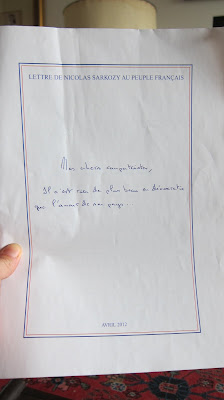 LETTRE DE NICOLAS SARKOZY AU PEUPLE FRANÇAIS
Mes chers compatriotes,
Il n'est rien de plus beau en démocratie
que l'amour de son pays.
AVRIL 2012